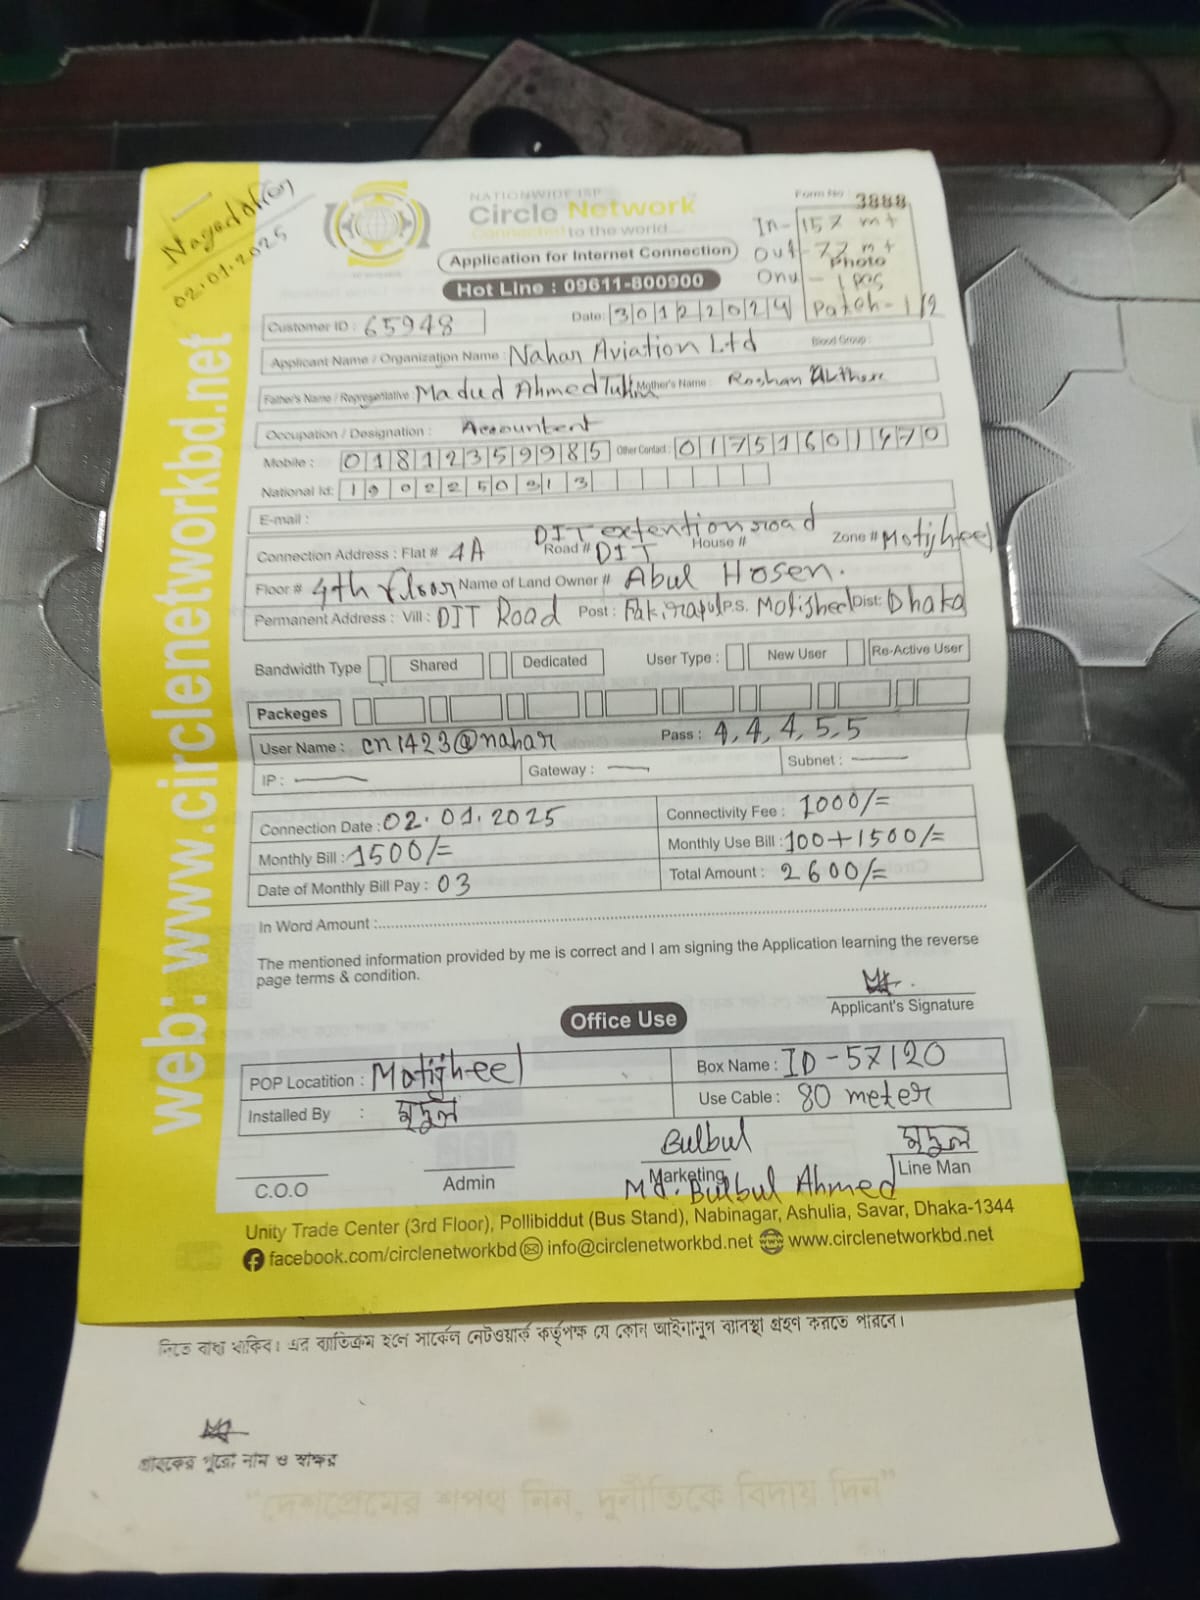 02.01.2025
NATIONWIDE ISP
Circle Network
Connected to the world...
Form No : 3888
Photo
In- 157 mt
Out- 77 mt
Onu - 1 pcs
Patch - 1/2
Application for Internet Connection
Hot Line : 09611-800900
Date: 30122024
Customer ID : 65948
Applicant Name / Organization Name : Nahar Aviation Ltd Blood Group :
Father's Name / Representative : Madud Ahmed Mother's Name : Roshan
Occupation / Designation : Accountent
Mobile : 01812359985 Other Contact : 01751601470
National Id: 1902250313
E-mail :
DIT extention road
Connection Address : Flat # 4A Road # DIT House # Zone # Motijheel
Floor # 4th floor Name of Land Owner # Abul Hosen.
Permanent Address : Vill : DIT Road Post : Fakirapul P.S. Motijheel Dist: Dhaka
Bandwidth Type Shared Dedicated User Type : New User Re-Active User
Packeges
User Name : cn1423@nahar Pass : 4,4,4,5,5
IP : — Gateway : — Subnet : —
Connection Date : 02.01.2025 Connectivity Fee : 1000/=
Monthly Bill : 1500/= Monthly Use Bill : 100+1500/=
Date of Monthly Bill Pay : 03 Total Amount : 2600/=
In Word Amount :
The mentioned information provided by me is correct and I am signing the Application learning the reverse
page terms & condition.
Applicant's Signature
Office Use
POP Locatition : Motijheel Box Name : ID-57120
Installed By : মৃদুল Use Cable : 80 meter
Bulbul মৃদুল
C.O.O Admin Marketing Line Man
Md. Bulbul Ahmed
Unity Trade Center (3rd Floor), Pollibiddut (Bus Stand), Nabinagar, Ashulia, Savar, Dhaka-1344
facebook.com/circlenetworkbd info@circlenetworkbd.net www.circlenetworkbd.net
web: www.circlenetworkbd.net
দিতে বাধ্য থাকিব। এর ব্যতিক্রম হলে সার্কেল নেটওয়ার্ক কর্তৃপক্ষ যে কোন আইনানুগ ব্যবস্থা গ্রহণ করতে পারবে।
গ্রাহকের পুরো নাম ও স্বাক্ষর
"দেশপ্রেমের শপথ নিন, দুর্নীতিকে বিদায় দিন"